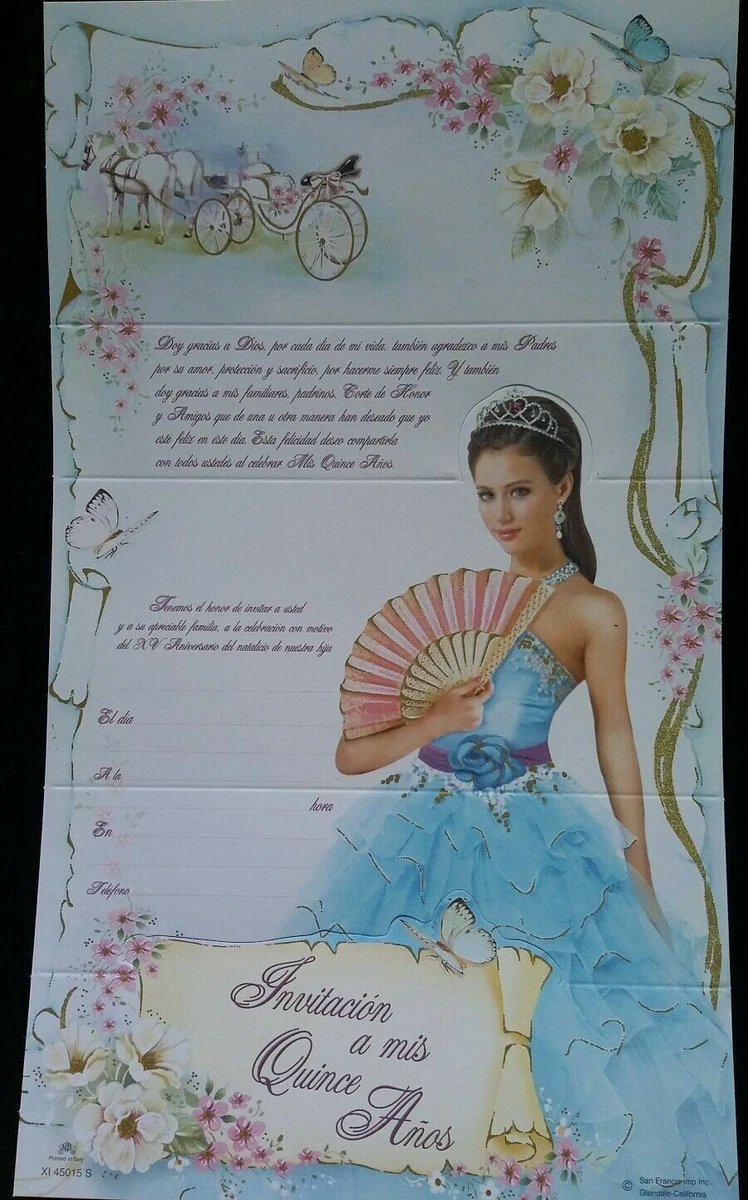 Doy gracias a Dios, por cada dia de mi vida, también agradezco a mis Padres
por su amor, protección y sacrificio, por hacerme siempre feliz. Y también
doy gracias a mis familiares, padrinos, Corte de Honor
y Amigos que de una u otra manera han deseado que yo
esté feliz en éste dia. Esta felicidad deseo compartirla
con todos ustedes al celebrar Mis Quince Años.
Tenemos el honor de invitar a usted
y a su apreciable familia, a la celebración con motivo
del XV Aniversario del natalicio de nuestra hija
El dia
A la
hora
En
Teléfono
Invitación
a mis
Quince
Años
Printed in Italy
XI 45015 S
© San Francis Imp Inc
Glendale-California